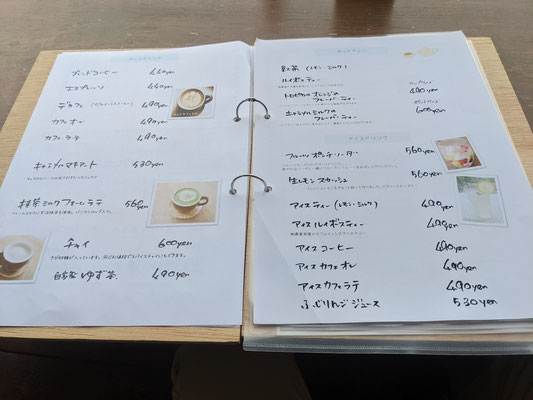 ホットドリンク
ブレンドコーヒー 440yen
エスプレッソ 440yen
デカフェ 490yen
カフェオレ 490yen
カフェラテ 490yen
キャラメルマキアート 530yen
抹茶ミルクフォームラテ 560yen
チャイ 600yen
自家製ゆず茶 490yen
ホットティー
紅茶 (レモン・ミルク)
ルイボスティー
トロピカルオレンジの
フレーバーティー
490yen
キャラメルミルクの
フレーバーティー
600yen
アイスドリンク
フルーツポンチソーダー 560yen
生レモンスカッシュ 560yen
アイスティー (レモン・ミルク) 490yen
アイスルイボスティー 490yen
アイスコーヒー 490yen
アイスカフェオレ 490yen
アイスカフェラテ 490yen
ふじりんごジュース 530yen